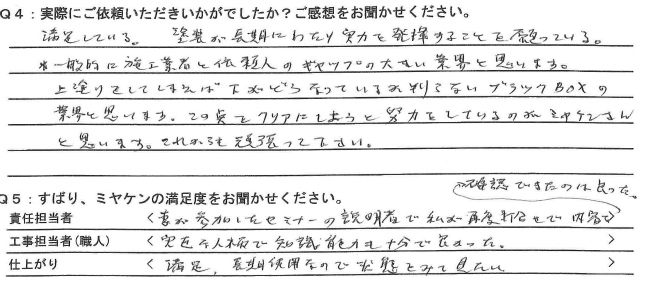 Q４：実際にご依頼いただきいかがでしたか？ご感想をお聞かせください。
満足している。 塗装が長期にわたり実力を発揮することを願っている。
*一般的に施工業者と依頼人のギャップの大きい業界と思います。
上塗りをしてしまえば下がどうなっているか判らないブラックBOXの
業界と思います。この点をクリアにしようと努力をしているのがミヤケンさん
と思います。これからも頑張って下さい。
Q５：ずばり、ミヤケンの満足度をお聞かせください。
確認できたのは良った。
責任担当者 < 妻が参加したセミナーの説明者で私が再度 打合せで 内容 >
工事担当者（職人） < 人柄で知識能力も十分で良かった。 >
仕上がり < 満足，長期使用なので状態をみて見たい >